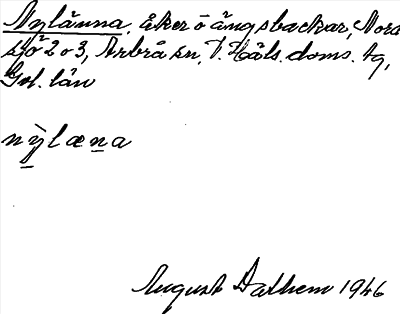 Nylänna, åker o ängsbackar, Nord
sjö 2 o 3, Arbrå sn, V. Häls. doms. tg,
Gvl. län
nỳlæna
August Dalhem 1946